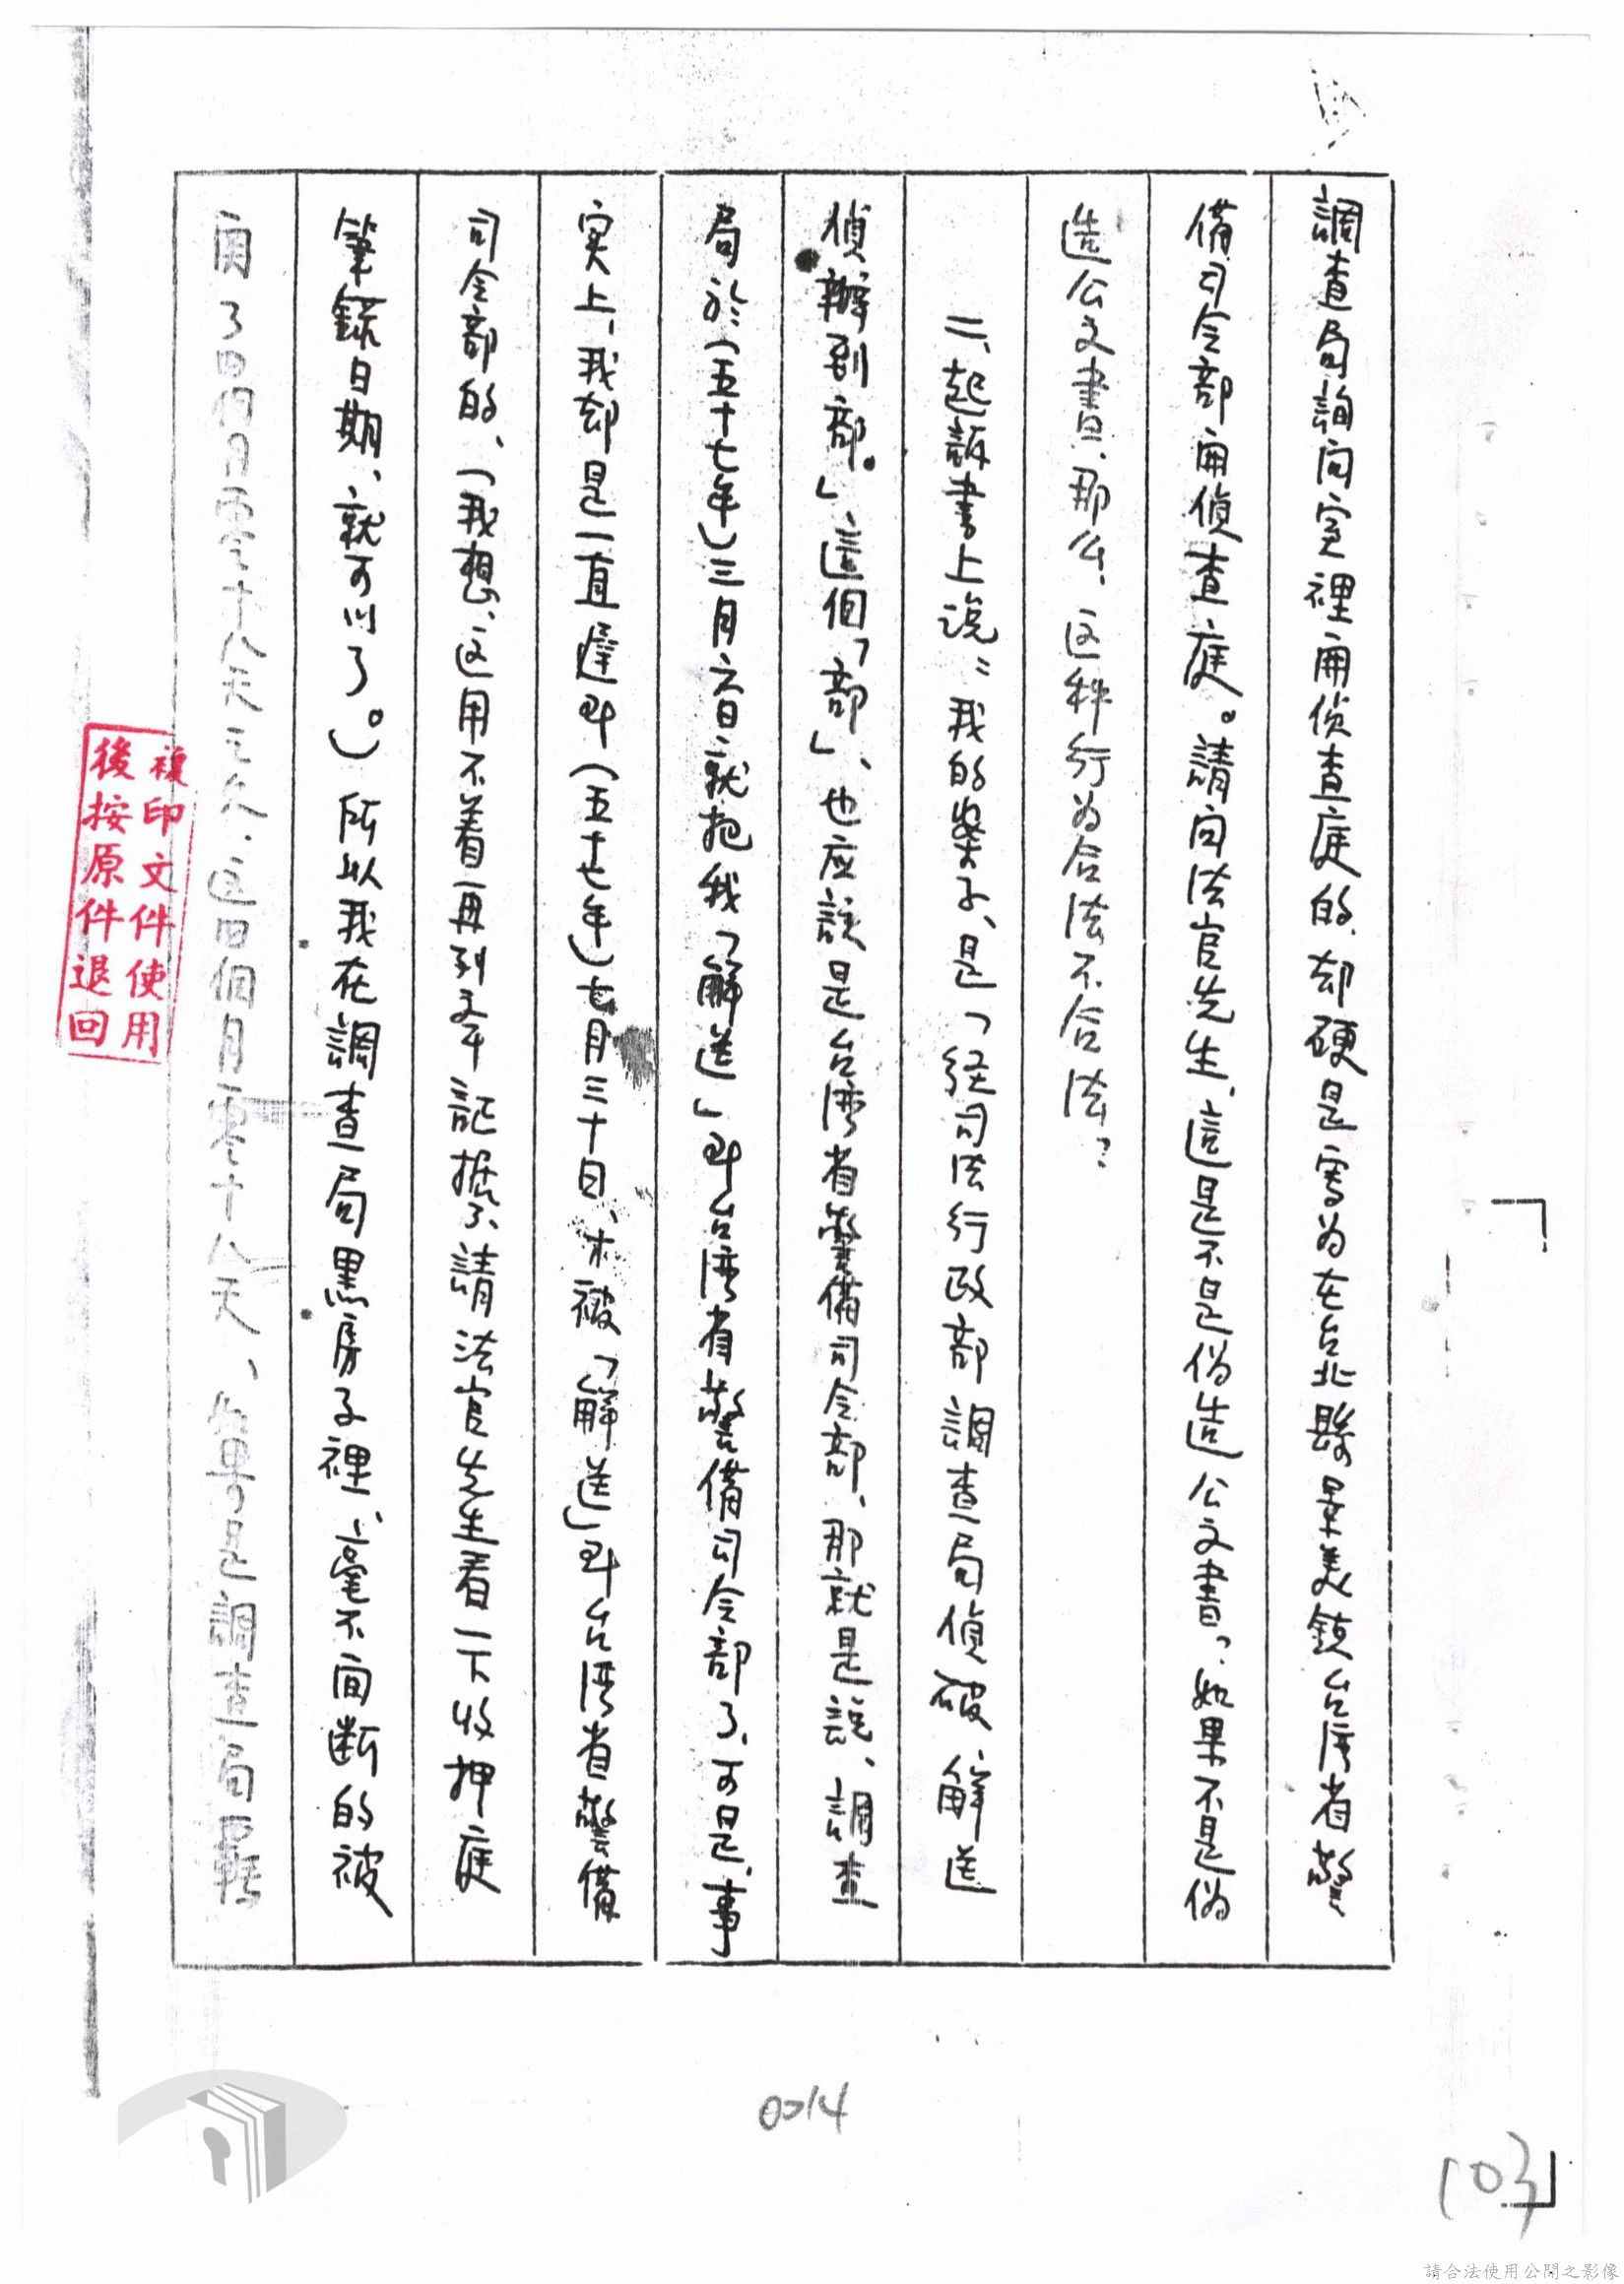 調查局詢问室裡用侦查庭的、却硬是寫为在台北縣景美鎮台湾省警
備司令部用偵查庭。請问法官先生、這是不是偽造公文書?、如果不是偽
造公文書、那么、这种行为合法不合法?
二、起訴書上说:我的案子、是「经司法行政部調查局偵破、解送
偵辦到部。」、這個「部」、也应該是台湾省警備司令部、那就是說、調查
局於(五十七年)三月六日就把我「解送」到台湾省警備司令部了、可是、事
实上、我却是一直遲到(五十七年)七月三十日、才被「解送」到台湾省警備
司令部的、(我想、这用不着再列举記据了、請法官先生看一下收押庭
筆錄日期、就可以了。)所以我在調查局黑房子裡、毫不间断的被
用了四個月零十八天之久、这四個月零十八天、如果是調查局羈
複印文件使用
後按原件退回
0014
103
請合法使用公開之影像